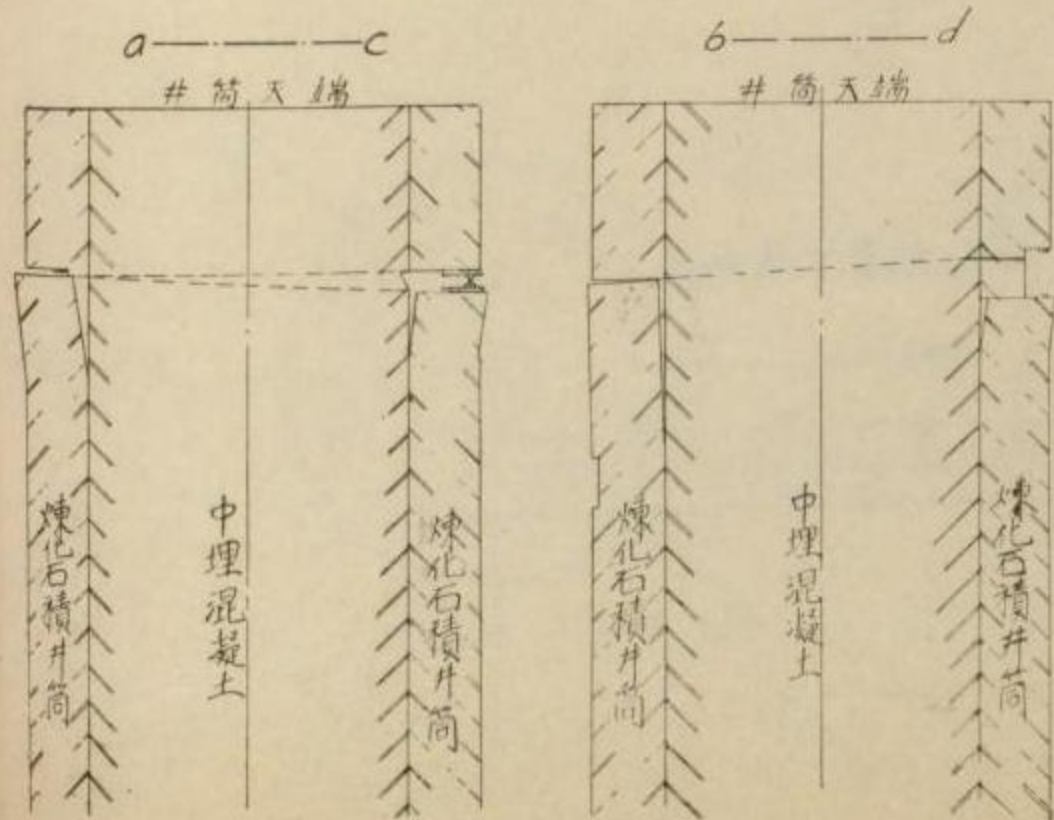 a c
井筒天端
煉化石積井筒
中埋混凝土
煉化石積井筒
b d
井筒天端
煉化石積井筒
中埋混凝土
煉化石積井筒